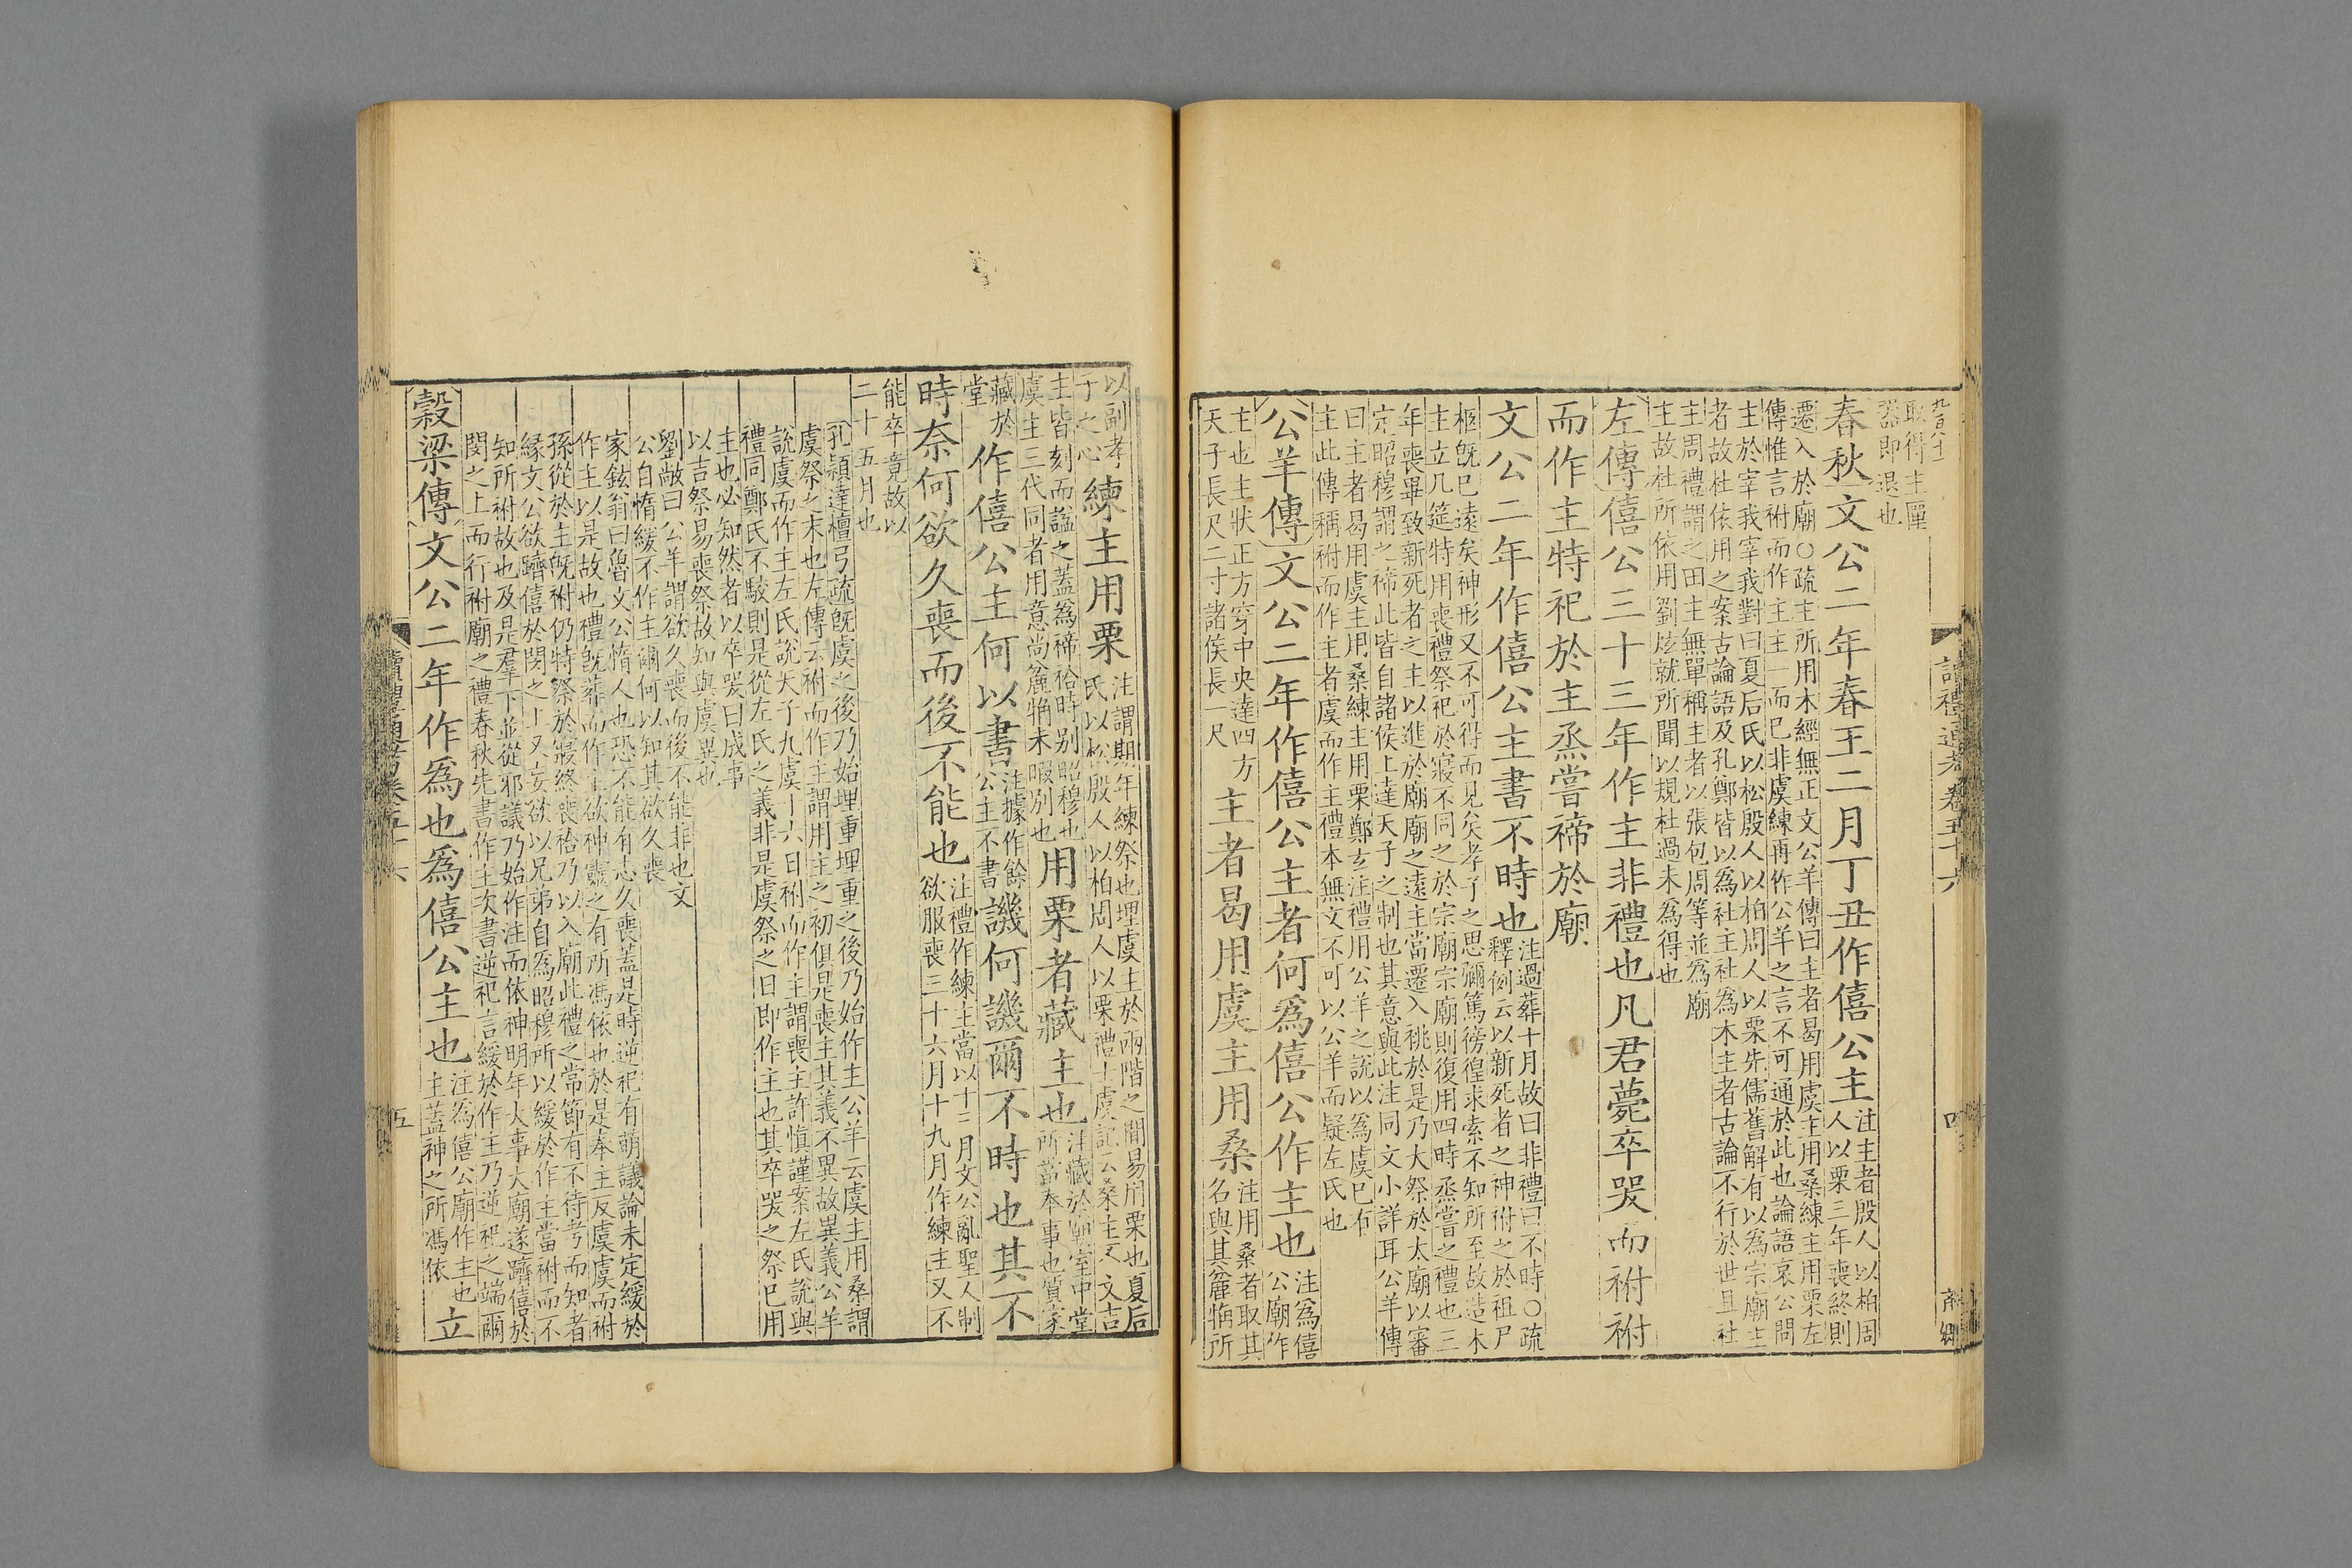 取得主匰
器即退也
春秋文公二年春王二月丁丑作僖公主
注主者殷人以柏周
人以栗三年喪終則
遷入於廟○疏主所用木經無正文公羊傳曰主者曷用虞主用桑練主用栗左
傳惟言祔而作主主一而已非虞練再作公羊之言不可通於此也論語哀公問
主於宰我宰我對曰夏后氏以松殷人以柏周人以栗先儒舊解有以為宗廟主
者故杜依用之案古論語及孔鄭皆以為社主社為木主者古論不行於世且社
主周禮謂之田主無單稱主者以張包周等並為廟
主故杜所依用劉炫就所聞以規杜過未為得也
左傳僖公三十三年作主非禮也凡君薨卒哭而祔祔
而作主特祀於主烝嘗禘於廟
文公二年作僖公主書不時也
注過葬十月故曰非禮曰不時○疏
釋例云以新死者之神祔之於祖尸
柩旣已遠矣神形又不可得而見矣孝子之思彌篤徬徨求索不知所至故造木
主立几筵特用喪禮祭祀於寢不同之於宗廟宗廟則復用四時烝嘗之禮也三
年喪畢致新死者之主以進於廟廟之遠主當遷入祧於是乃大祭於太廟以審
定昭穆謂之禘此皆自諸侯上達天子之制也其意與此注同文小詳耳公羊傳
曰主者曷用虞主用桑練主用栗鄭玄注禮用公羊之說以為虞已有
主此傳稱祔而作主者虞而作主禮本無文不可以公羊而疑左氏也
公羊傳文公二年作僖公主者何為僖公作主也
注為僖
公廟作
主也主狀正方穿中央達四方
天子長尺二寸諸侯長一尺
主者曷用虞主用桑
注用桑者取其
名與其麤觕所
以副孝
子之心
練主用栗
注謂期年練祭也埋虞主於兩階之間易用栗也夏后
氏以松殷人以柏周人以栗禮士虞記云桑主不文吉
主皆刻而諡之蓋為禘祫時別昭穆也
虞主三代同者用意尚麤觕未暇別也
用栗者藏主也
注藏於廟室中堂
所當奉事也質家
藏於
堂
作僖公主何以書
注據作餘
公主不書
譏何譏爾不時也其不
時奈何欲久喪而後不能也
注禮作練主當以十三月文公亂聖人制
欲服喪三十六月十九月作練主又不
能卒竟故以
二十五月也
孔穎達檀弓疏旣虞之後乃始埋重埋重之後乃始作主公羊云虞主用桑謂
虞祭之末也左傳云祔而作主謂用主之初俱是喪主其義不異故異義公羊
說虞而作主左氏說天子九虞十六日祔而作主謂喪主許愼謹案左氏說與
禮同鄭氏不駮則是從左氏之義非是虞祭之日即作主也其卒哭之祭已用
主也必知然者以卒哭曰成事
以吉祭易喪祭故知與虞異也
劉敞曰公羊謂欲久喪而後不能非也文
公自惰緩不作主爾何以知其欲久喪
家鉉翁曰魯文公惰人也恐不能有志久喪蓋是時逆祀有萌議論未定緩於
作主以是故也禮旣葬而作主欲神靈之有所馮依也於是奉主反虞虞而祔
孫從於主旣祔仍特祭於寢終喪祫乃以入廟此禮之常節有不待考而知者
緣文公欲躋僖於閔之上又妄欲以兄弟自為昭穆所以緩於作主當祔而不
知所祔故也及是羣下並從邪議乃始作注而依神明年大事大廟遂躋僖於
閔之上而行祔廟之禮春秋先書作主次書逆祀言緩於作主乃逆祀之端爾
穀梁傳文公二年作為也為僖公主也
注為僖公廟作主也
主蓋神之所馮依
立
讀禮通考卷五十六
四
讀禮通考卷五十六
五